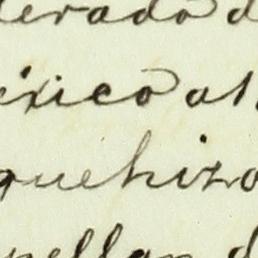 lerado d
éxico al
que hizo
pellan d